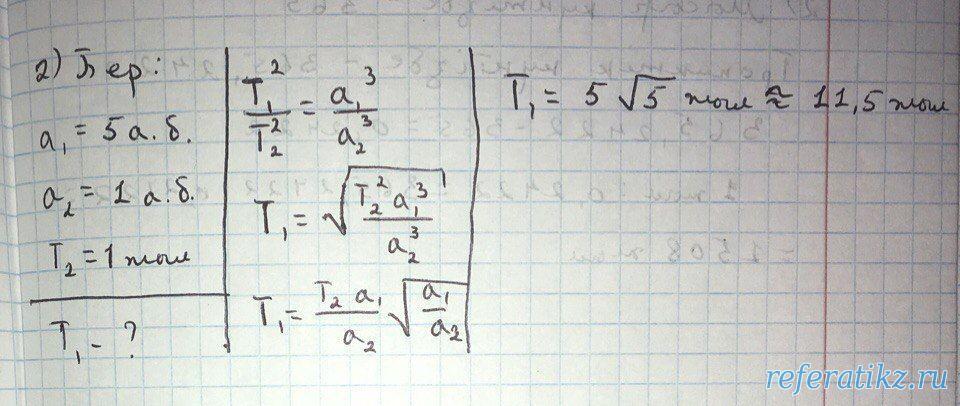 2) Бер:
a₁ = 5 а.б.
a₂ = 1 а.б.
T₂ = 1 жыл
T₁ - ?
T₁²/T₂² = a₁³/a₂³
T₁ = √(T₂² a₁³/a₂³)
T₁ = T₂ a₁/a₂ √(a₁/a₂)
T₁ = 5 √5 жыл ≈ 11,5 жыл
referatikz.ru